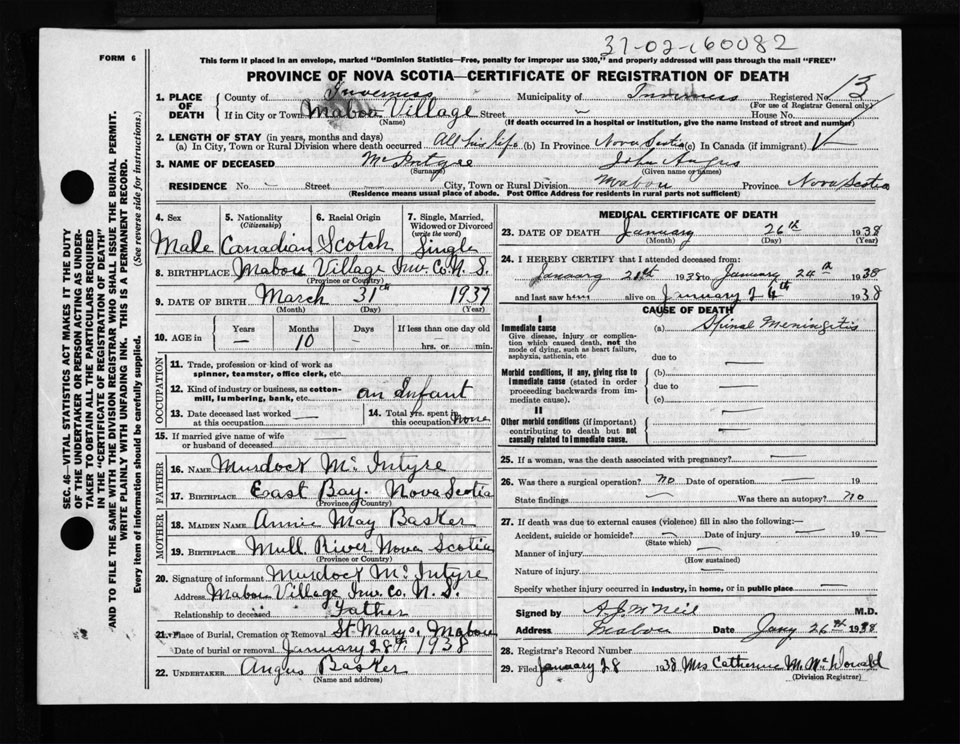 37-02-160082
FORM 6
This form if placed in an envelope, marked "Dominion Statistics—Free, penalty for improper use $300," and properly addressed will pass through the mail "FREE"
PROVINCE OF NOVA SCOTIA—CERTIFICATE OF REGISTRATION OF DEATH
SEC. 46—VITAL STATISTICS ACT MAKES IT THE DUTY
OF THE UNDERTAKER OR PERSON ACTING AS UNDER-
TAKER TO OBTAIN ALL THE PARTICULARS REQUIRED
IN THE "CERTIFICATE OF REGISTRATION OF DEATH"
AND TO FILE THE SAME WITH THE DIVISION REGISTRAR WHO SHALL ISSUE THE BURIAL PERMIT.
WRITE PLAINLY WITH UNFADING INK. THIS IS A PERMANENT RECORD.
Every item of information should be carefully supplied. (See reverse side for instructions.)
1. PLACE OF DEATH County of Inverness Municipality of Inverness Registered No. 13
(For use of Registrar General only)
If in City or Town Mabou Village Street — House No.
(Name) (If death occurred in a hospital or institution, give the name instead of street and number)
2. LENGTH OF STAY (in years, months and days)
(a) In City, Town or Rural Division where death occurred All his life (b) In Province Nova Scotia (c) In Canada (if immigrant)
3. NAME OF DECEASED McIntyre John Angus
(Surname) (Given name or names)
RESIDENCE No — Street — City, Town or Rural Division Mabou Province Nova Scotia
(Residence means usual place of abode. Post Office Address for residents in rural parts not sufficient)
4. Sex 5. Nationality 6. Racial Origin 7. Single, Married,
(Citizenship) Widowed or Divorced
(write the word)
Male Canadian Scotch Single
8. BIRTHPLACE Mabou Village Inv. Co. N. S.
(Province or Country)
9. DATE OF BIRTH March 31st 1937
(Month) (Day) (Year)
10. AGE in Years Months Days If less than one day old
— 10 — hrs. or min.
OCCUPATION
11. Trade, profession or kind of work as
spinner, teamster, office clerk, etc.
12. Kind of industry or business, as cotton-
mill, lumbering, bank, etc. an Infant
13. Date deceased last worked at this occupation — 14. Total yrs. spent in this occupation None
15. If married give name of wife
or husband of deceased —
FATHER
16. NAME Murdock McIntyre
17. BIRTHPLACE East Bay. Nova Scotia
(Province or Country)
MOTHER
18. MAIDEN NAME Annie May Basker
19. BIRTHPLACE Mull River Nova Scotia
(Province or Country)
20. Signature of informant Murdock McIntyre
Address Mabou Village Inv. Co. N. S.
Relationship to deceased Father
21. Place of Burial, Cremation or Removal St. Marys, Mabou
Date of burial or removal January 28th 1938
22. UNDERTAKER Angus Basker
(Name and address)
MEDICAL CERTIFICATE OF DEATH
23. DATE OF DEATH January 26th 1938
(Month) (Day) (Year)
24. I HEREBY CERTIFY that I attended deceased from:
January 1938 to January 1938
and last saw him alive on January 1938
CAUSE OF DEATH
I
Immediate cause (a) Spinal Meningitis
Give disease, injury or complication
which caused death, not the
mode of dying, such as heart failure,
asphyxia, asthenia, etc. due to —
Morbid conditions, if any, giving rise to (b) —
immediate cause (stated in order due to —
proceeding backwards from immediate cause). (c) —
II
Other morbid conditions (if important) —
contributing to death but not —
causally related to immediate cause.
25. If a woman, was the death associated with pregnancy? —
26. Was there a surgical operation? no Date of operation — 19
State findings — Was there an autopsy? no
27. If death was due to external causes (violence) fill in also the following:—
Accident, suicide or homicide? — Date of injury — 19 —
(State which)
Manner of injury —
(How sustained)
Nature of injury —
Specify whether injury occurred in industry, in home, or in public place —
Signed by A.J. McNeil M.D.
Address Mabou Date Jany 26th 1938
28. Registrar's Record Number
29. Filed January 28 1938 Mrs Catherine M. McDonald
(Division Registrar)